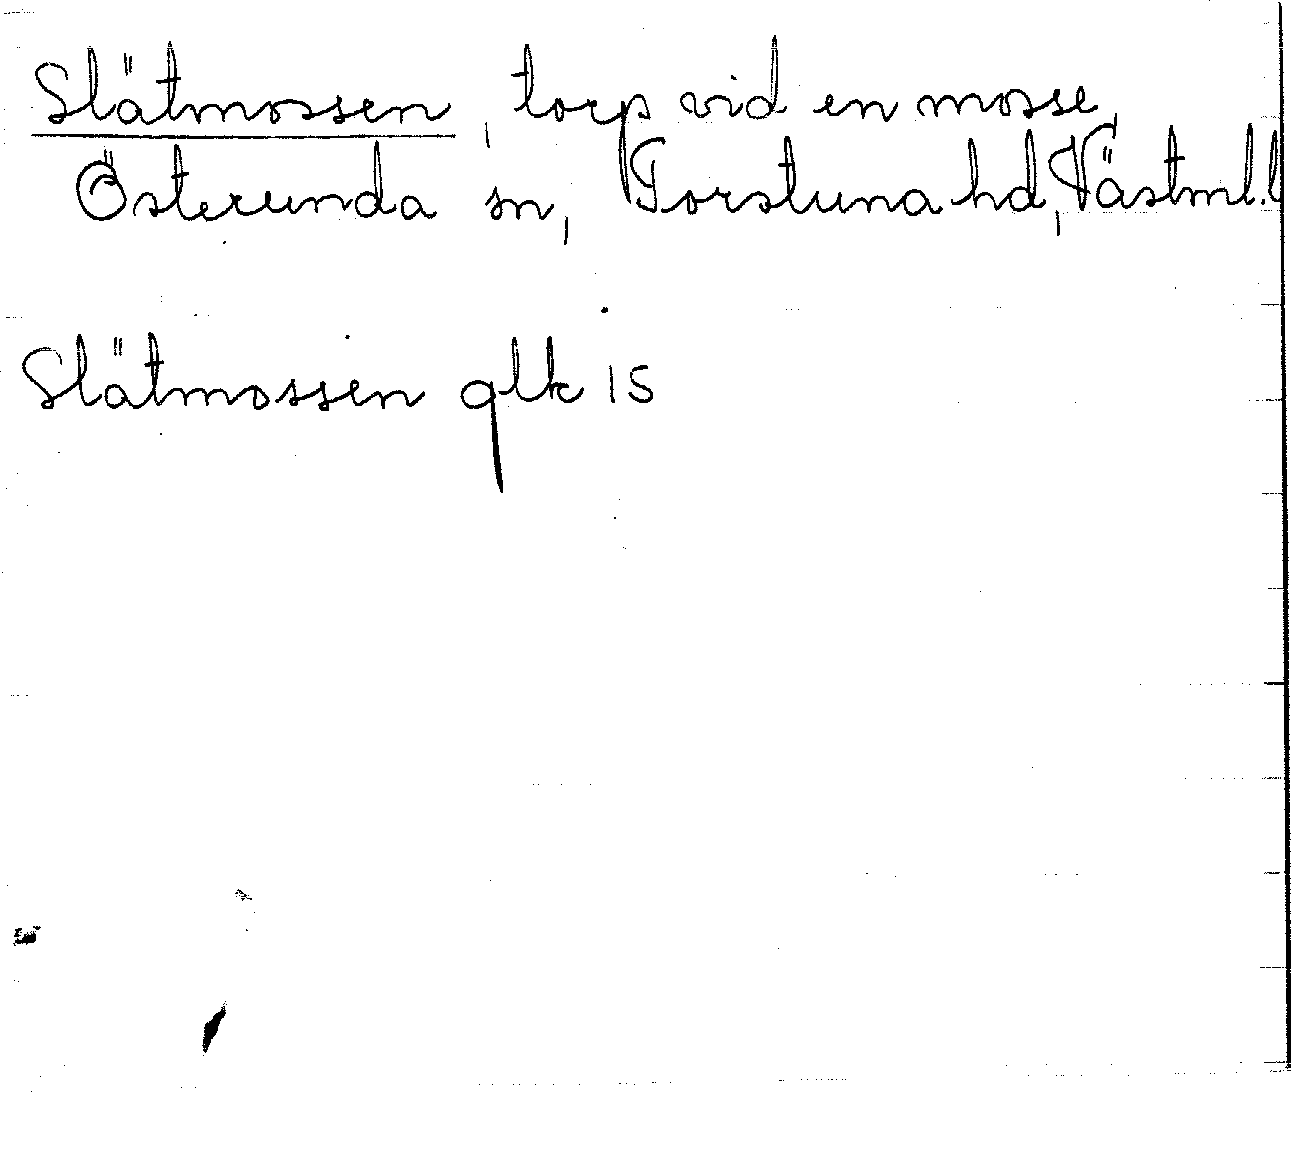 Slätmossen, torp vid en mosse,
Österunda sn, Torstuna hd, Västml. l
Slätmossen glk 15